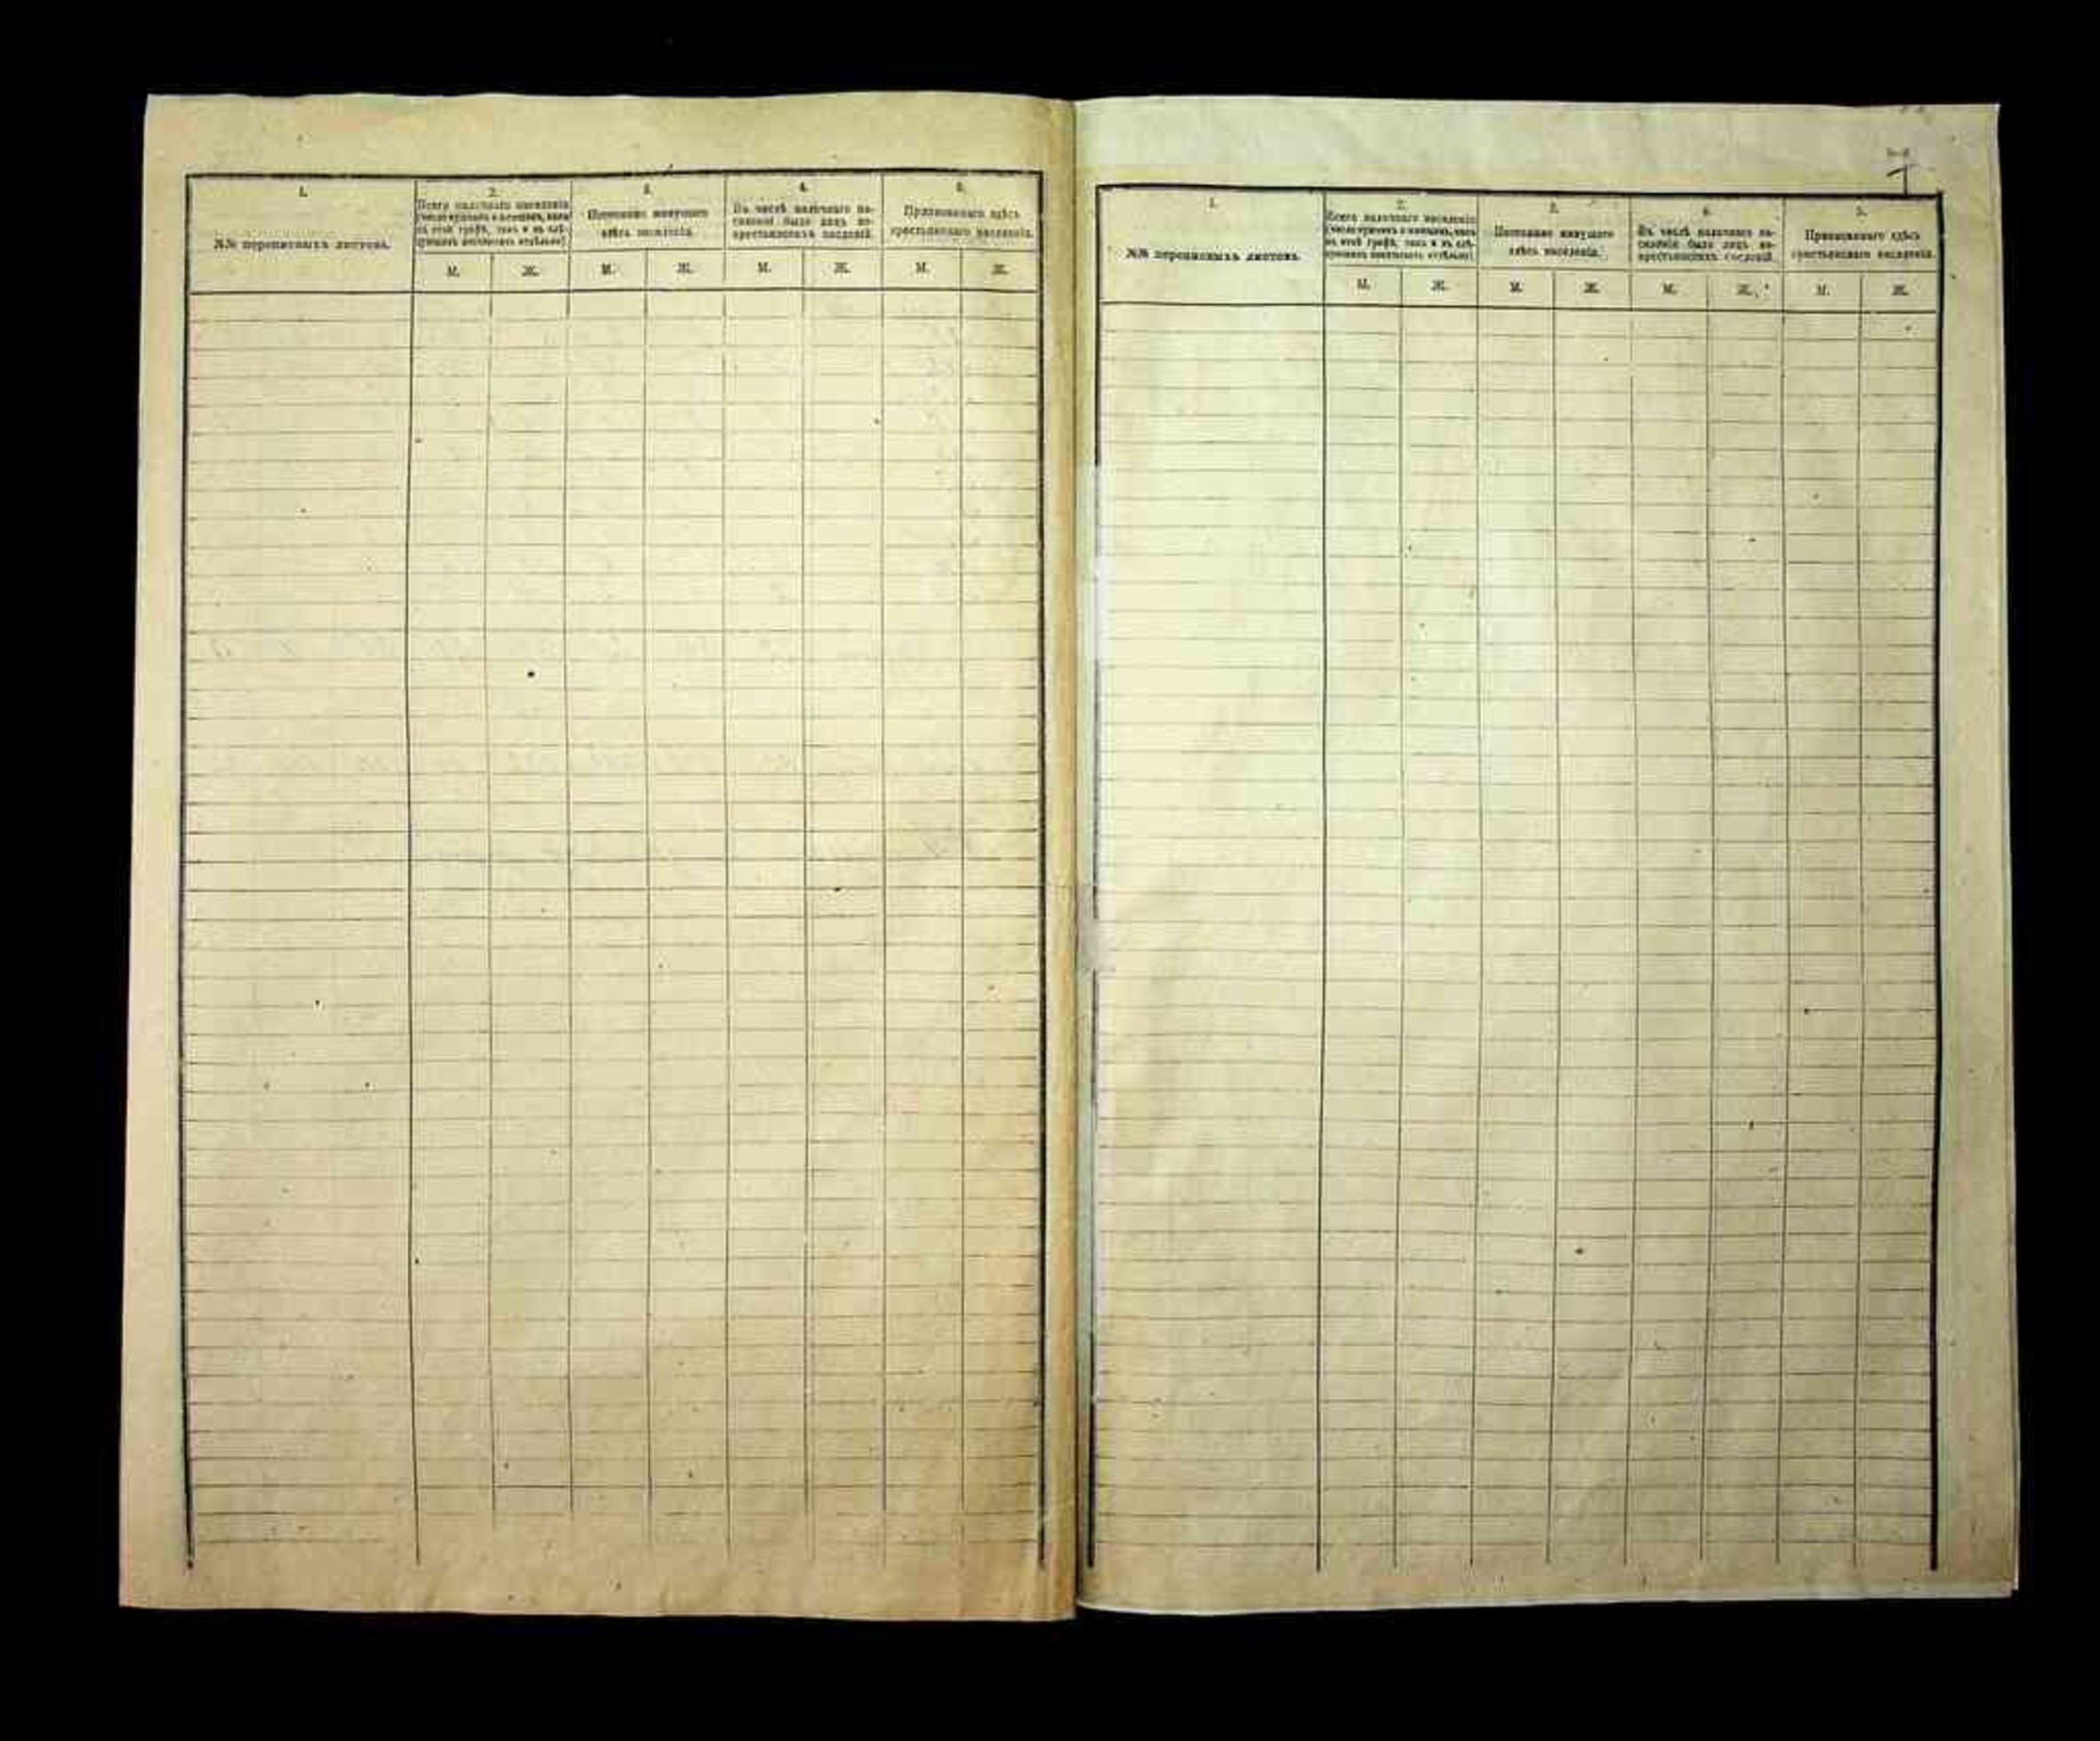 1.
№№ переписныхъ листовъ.
2.
Всего наличнаго населенія
(число мужчинъ и женщинъ, какъ
въ этой графѣ, такъ и въ слѣ-
дующихъ отдѣльно).
3.
Постоянно живущаго
здѣсь населенія.
4.
Въ числѣ наличнаго на-
селенія было лицъ не-
крестьянскихъ сословій.
5.
Приписаннаго здѣсь
крестьянскаго населенія.
М. Ж. М. Ж. М. Ж. М. Ж.
1.
№№ переписныхъ листовъ.
2.
Всего наличнаго населенія
(число мужчинъ и женщинъ, какъ
въ этой графѣ, такъ и въ слѣ-
дующихъ отдѣльно).
3.
Постоянно живущаго
здѣсь населенія.
4.
Въ числѣ наличнаго на-
селенія было лицъ не-
крестьянскихъ сословій.
5.
Приписаннаго здѣсь
крестьянскаго населенія.
М. Ж. М. Ж. М. Ж. М. Ж.